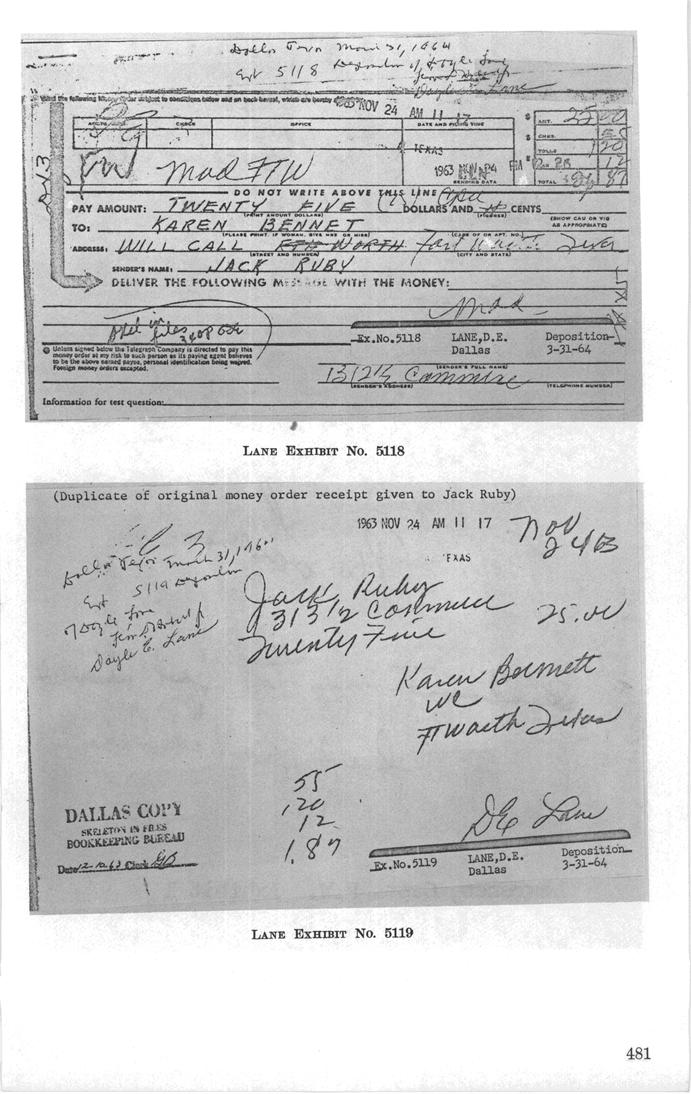 Dallas Texas March 31, 1964
Ext 5118 Deposition of Doyle Lane
Doyle E. Lane
Send the following Money Order subject to conditions below and on back hereof, which are hereby
1963 NOV 24 AM 11 17
ACCTG. CHECK OFFICE DATE AND FILING TIME
AMT. 25 00
CHGS. 55
TOLLS 1 20
12
TOTAL 26 87
TEXAS
1963 NOV 24
SENDING DATA
Mod FTW
DO NOT WRITE ABOVE THIS LINE
PAY AMOUNT: TWENTY FIVE DOLLARS AND CENTS
(PRINT AMOUNT DOLLARS) (FIGURES) (SHOW CAU OR VIG AS APPROPRIATE)
TO: KAREN BENNET
(PLEASE PRINT. IF WOMAN, GIVE MRS OR MISS) (CARE OF OR APT. NO.)
ADDRESS: WILL CALL FTH WORTH Fort Worth Texas
(STREET AND NUMBER) (CITY AND STATE)
SENDER'S NAME: JACK RUBY
DELIVER THE FOLLOWING MESSAGE WITH THE MONEY:
Mod
files
Unless signed below the Telegraph Company is directed to pay this
money order at my risk to such person as its paying agent believes
to be the above named payee, personal identification being waived.
Foreign money orders excepted.
Ex.No.5118 LANE,D.E. Deposition
Dallas 3-31-64
(SENDER'S FULL NAME)
1312½ Commerce
(SENDER'S ADDRESS) (TELEPHONE NUMBER)
Information for test question:
LANE EXHIBIT No. 5118
(Duplicate of original money order receipt given to Jack Ruby)
1963 NOV 24 AM 11 17
Nov 24 63
TEXAS
Dallas Texas March 31, 1964
Ext 5119 Deposition
of Doyle Lane
Doyle E. Lane
Jack Ruby
1313 1/2 Commerce
25.00
Twenty Five
Karen Bennett
WC
Ft Worth Texas
55
120
12
1.87
DALLAS COPY
SKELETON IN FILES
BOOKKEEPING BUREAU
Date 12-10-63 Clerk
D E Lane
Ex.No.5119 LANE,D.E. Deposition
Dallas 3-31-64
LANE EXHIBIT No. 5119
481